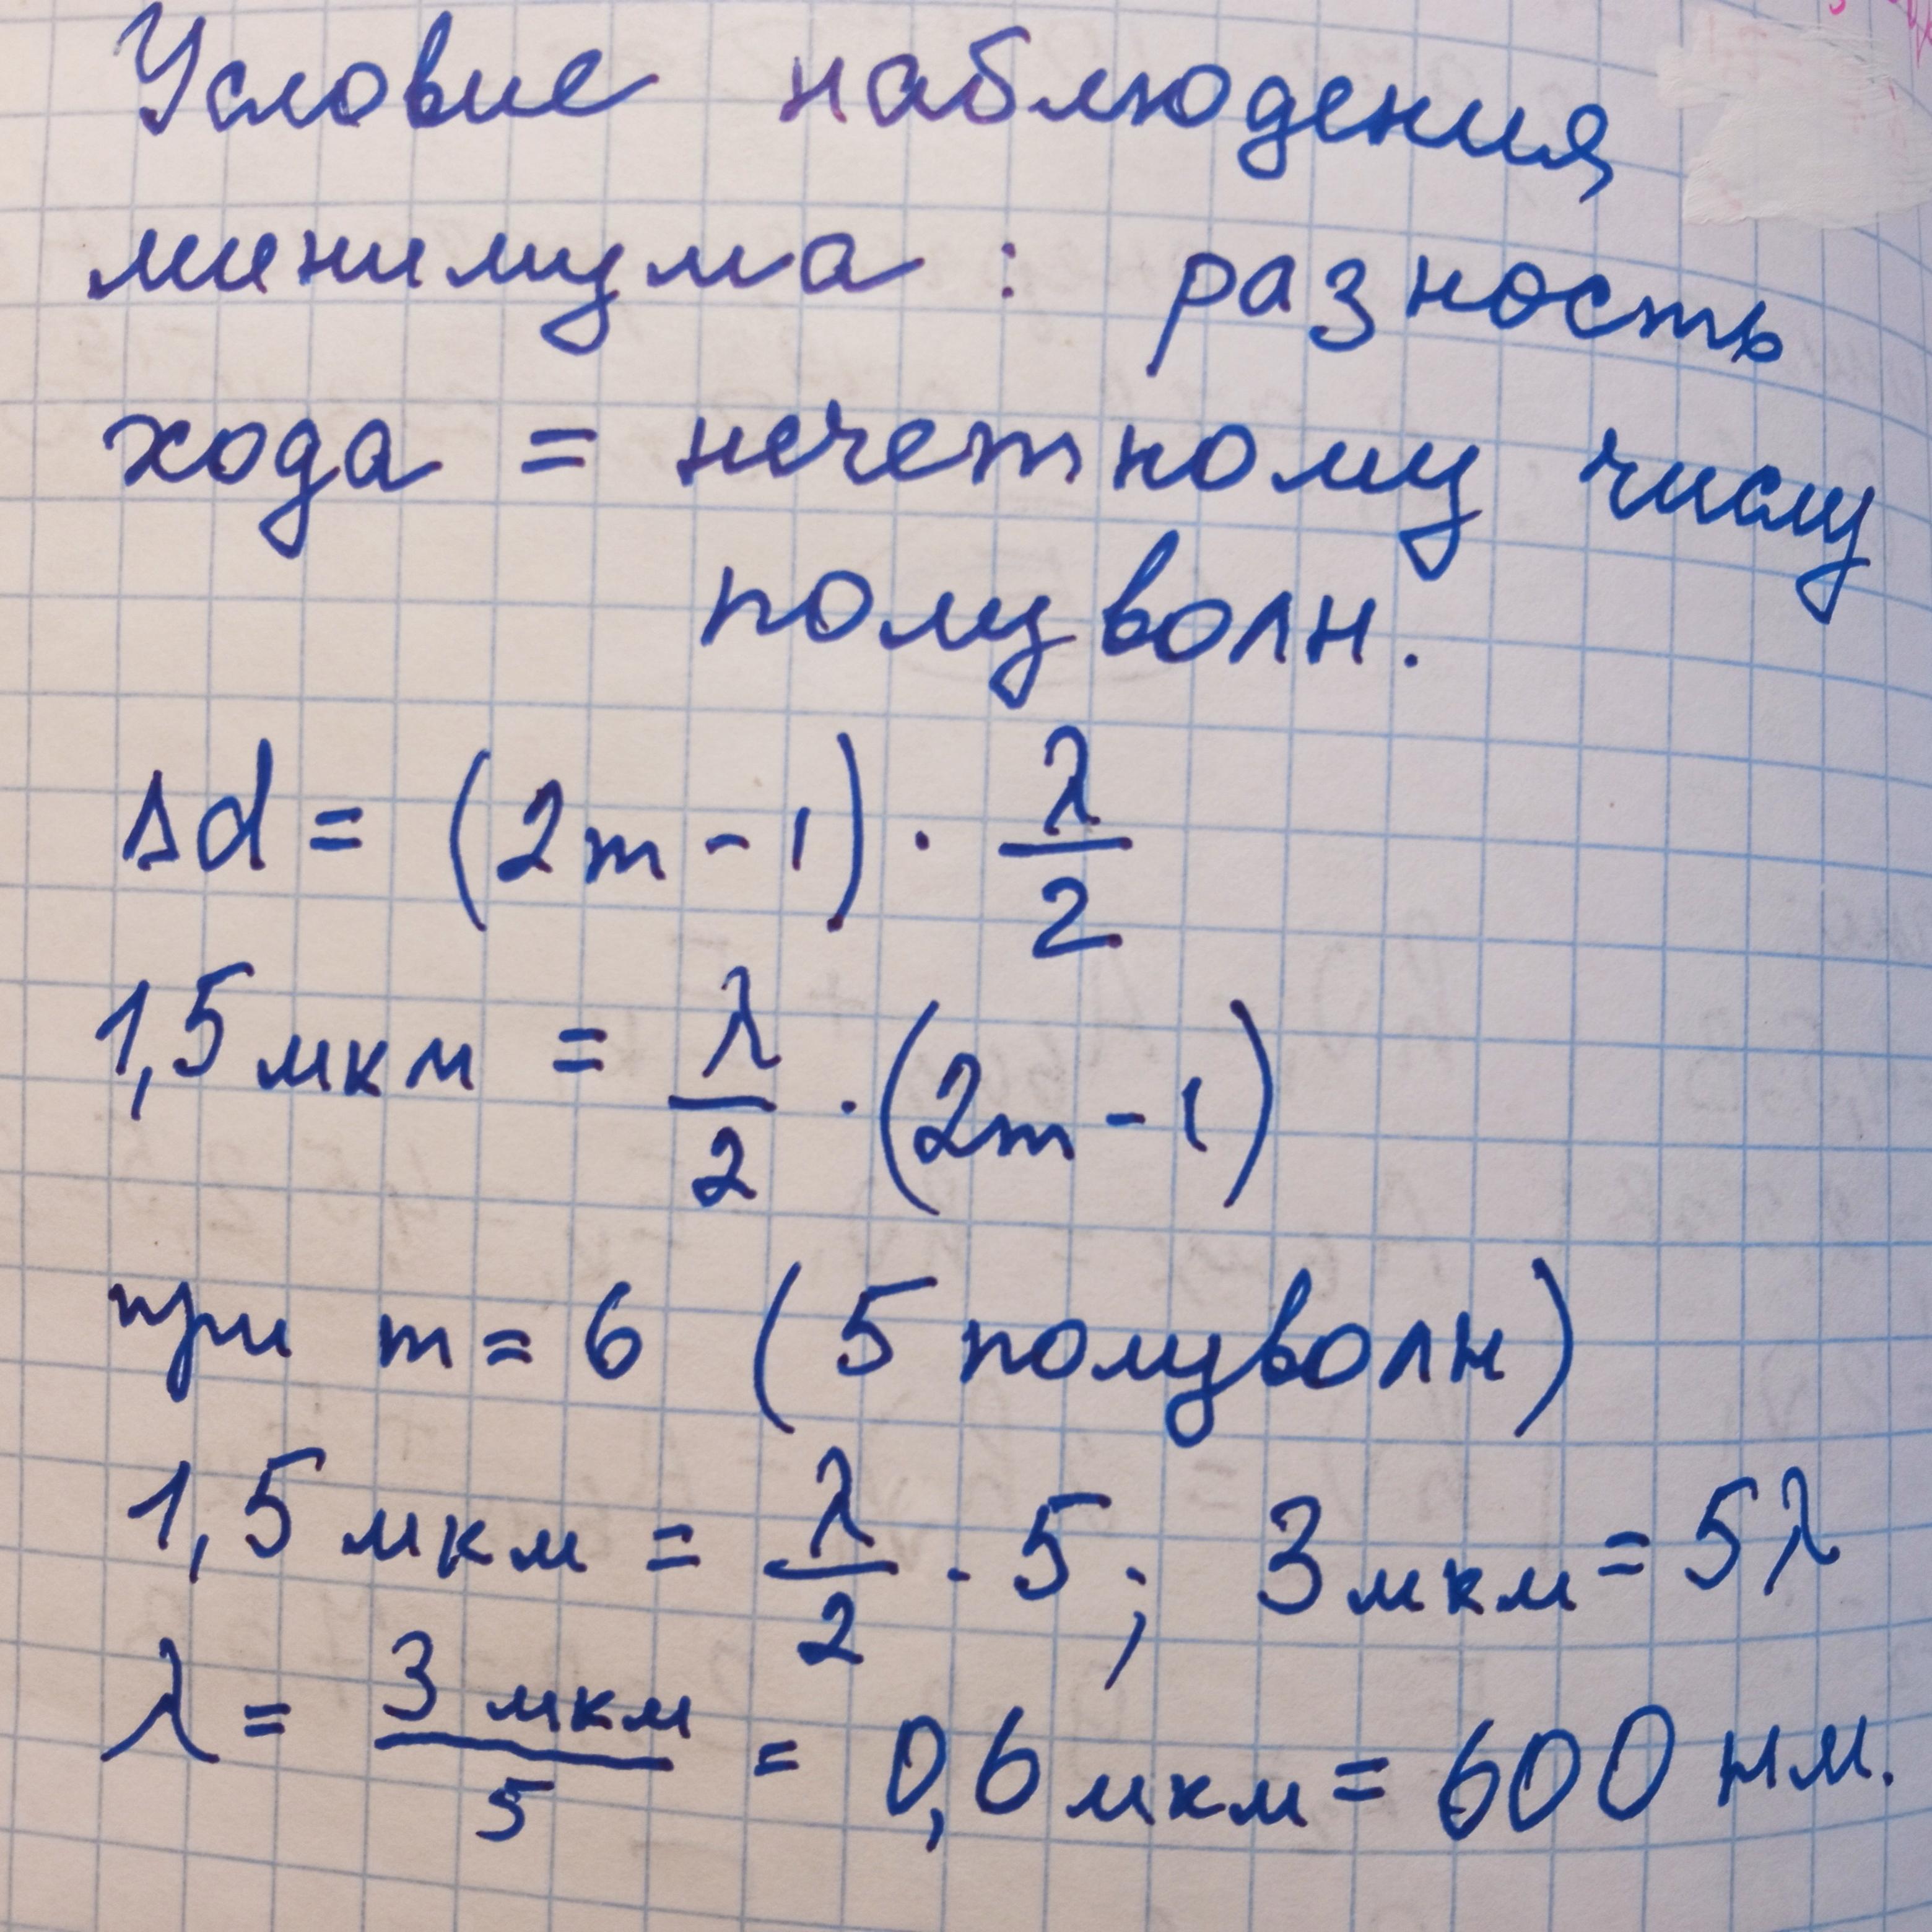 Условие наблюдения
минимума : разность
хода = нечетному числу
полуволн.
Δd = (2m - 1) · λ/2
1,5 мкм = λ/2 · (2m - 1)
при m = 6 (5 полуволн)
1,5 мкм = λ/2 · 5; 3 мкм = 5λ
λ = 3 мкм/5 = 0,6 мкм = 600 нм.